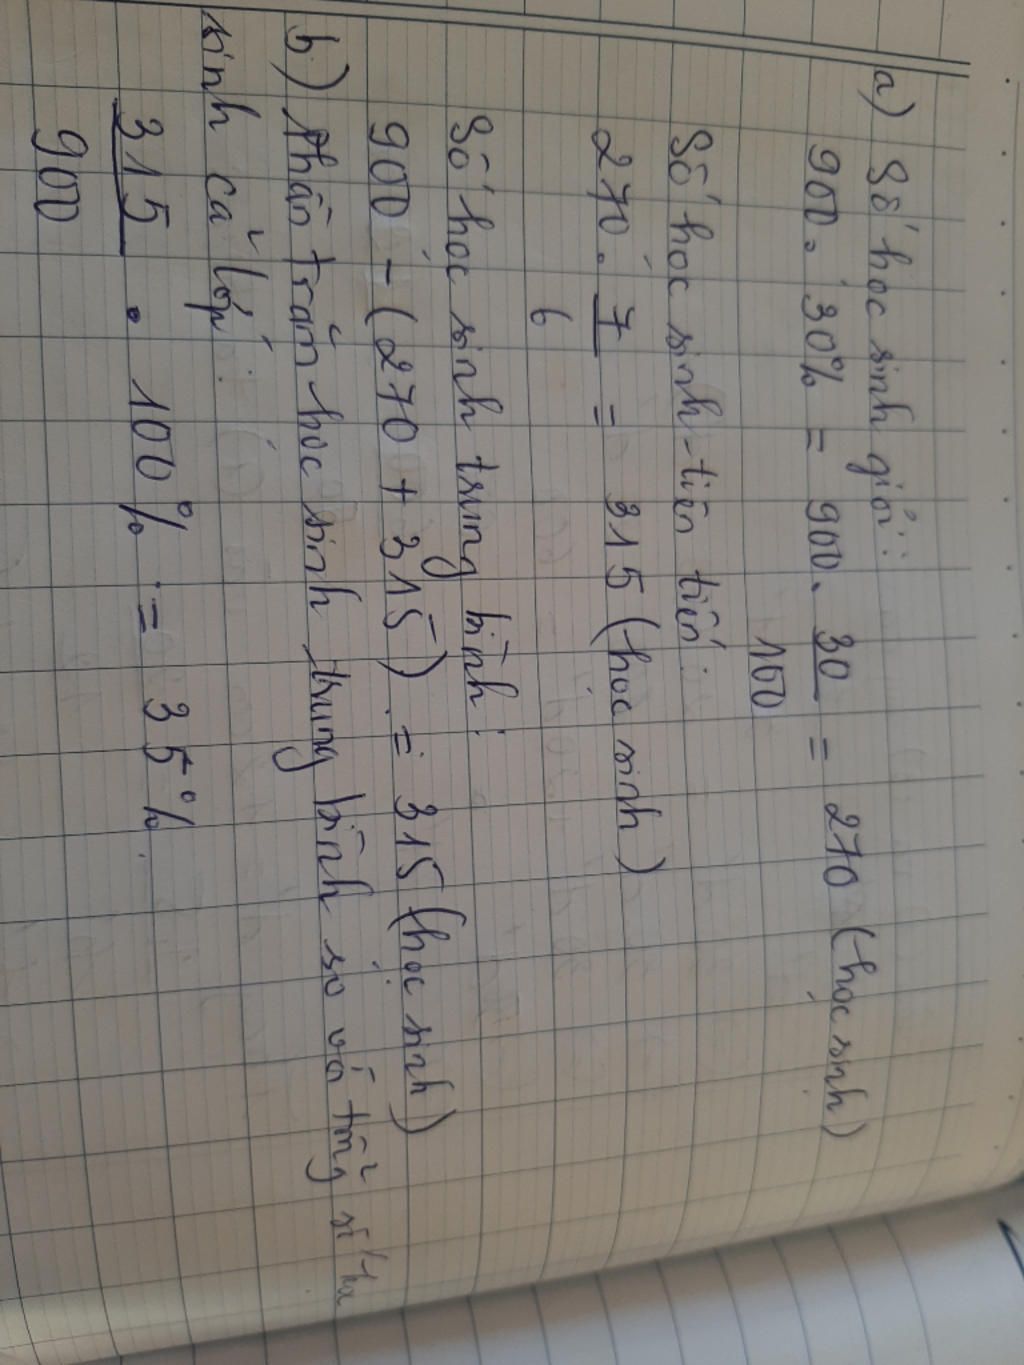 a) Số học sinh giỏi:
900. 30% = 900. 30/100 = 270 (học sinh)
Số học sinh tiên tiến:
270. 7/6 = 315 (học sinh)
Số học sinh trung bình:
900 - (270 + 315) = 315 (học sinh)
b) Phần trăm học sinh trung bình so với tổng số
sinh cả lớp:
315/900 . 100% = 35%